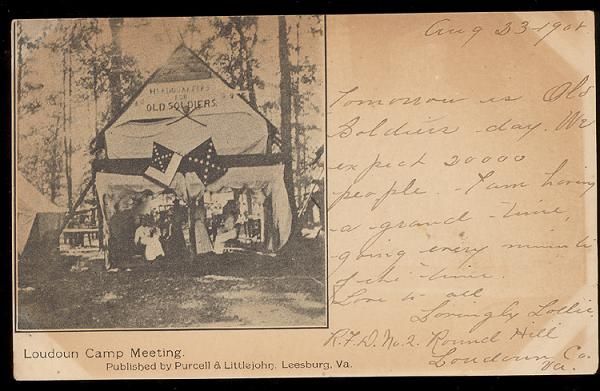 HEADQUARTERS
FOR
OLD SOLDIERS.
Aug 23-1908
Tomorrow is Old
Soldiers day. We
expect 20000
people. I am having
a grand time,
going every minute
of the time.
Love to all
Lovingly Lollie.
R.F.D. No. 2. Round Hill
Loudoun Co.
Va.
Loudoun Camp Meeting.
Published by Purcell & Littlejohn, Leesburg, Va.